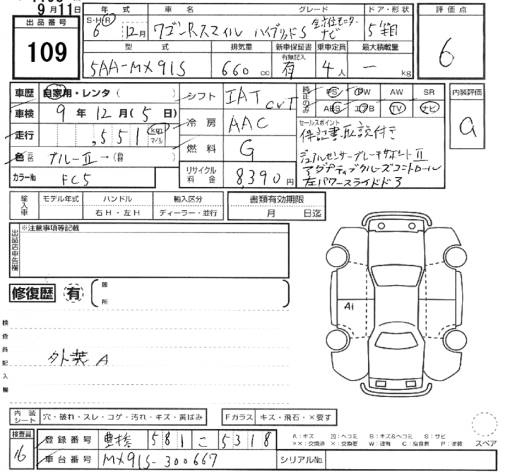 9月11日
出品番号
109
年式 車名 グレード ドア・形状
S・H・R 6 12月 ワゴンRスマイル ハイブリッドS 全方位モニターナビ 5
型式 排気量 新車保証書 乗車定員 最大積載量
有無記入
5AA-MX91S 660 cc 有 4人 ー kg
評価点
6
車歴 自家用・レンタ( )
車検 9年12月(5日)
走行 ,551
色 ブルーⅡ→(
カラーNo FC5
シフト IAT CVT
冷房 AAC
燃料 G
リサイクル料金 8,390円
PS PW AW SR
ABS エアB TV ナビ
セールスポイント
デュアルセンサーブレーキサポートⅡ
アダプティブクルーズコントロール
左パワースライドドア
内装評価
a
輸入車 モデル年式 ハンドル 輸入区分 書類有効期限
右H・左H ディーラー・並行 月 日迄
出品店申告欄
※注意事項等記載
修復歴 有 箇所
検査員記入欄
外装A
A1
内装シート 穴・破れ・スレ・コゲ・汚れ・キズ・黄ばみ
Fガラス キズ・飛石・×要す
検査員
16
登録番号 豊橋 581 こ 5318
車台番号 MX91S-300667
シリアルNo.
A:キズ U:ヘコミ B:キズ&ヘコミ S:サビ
スペア